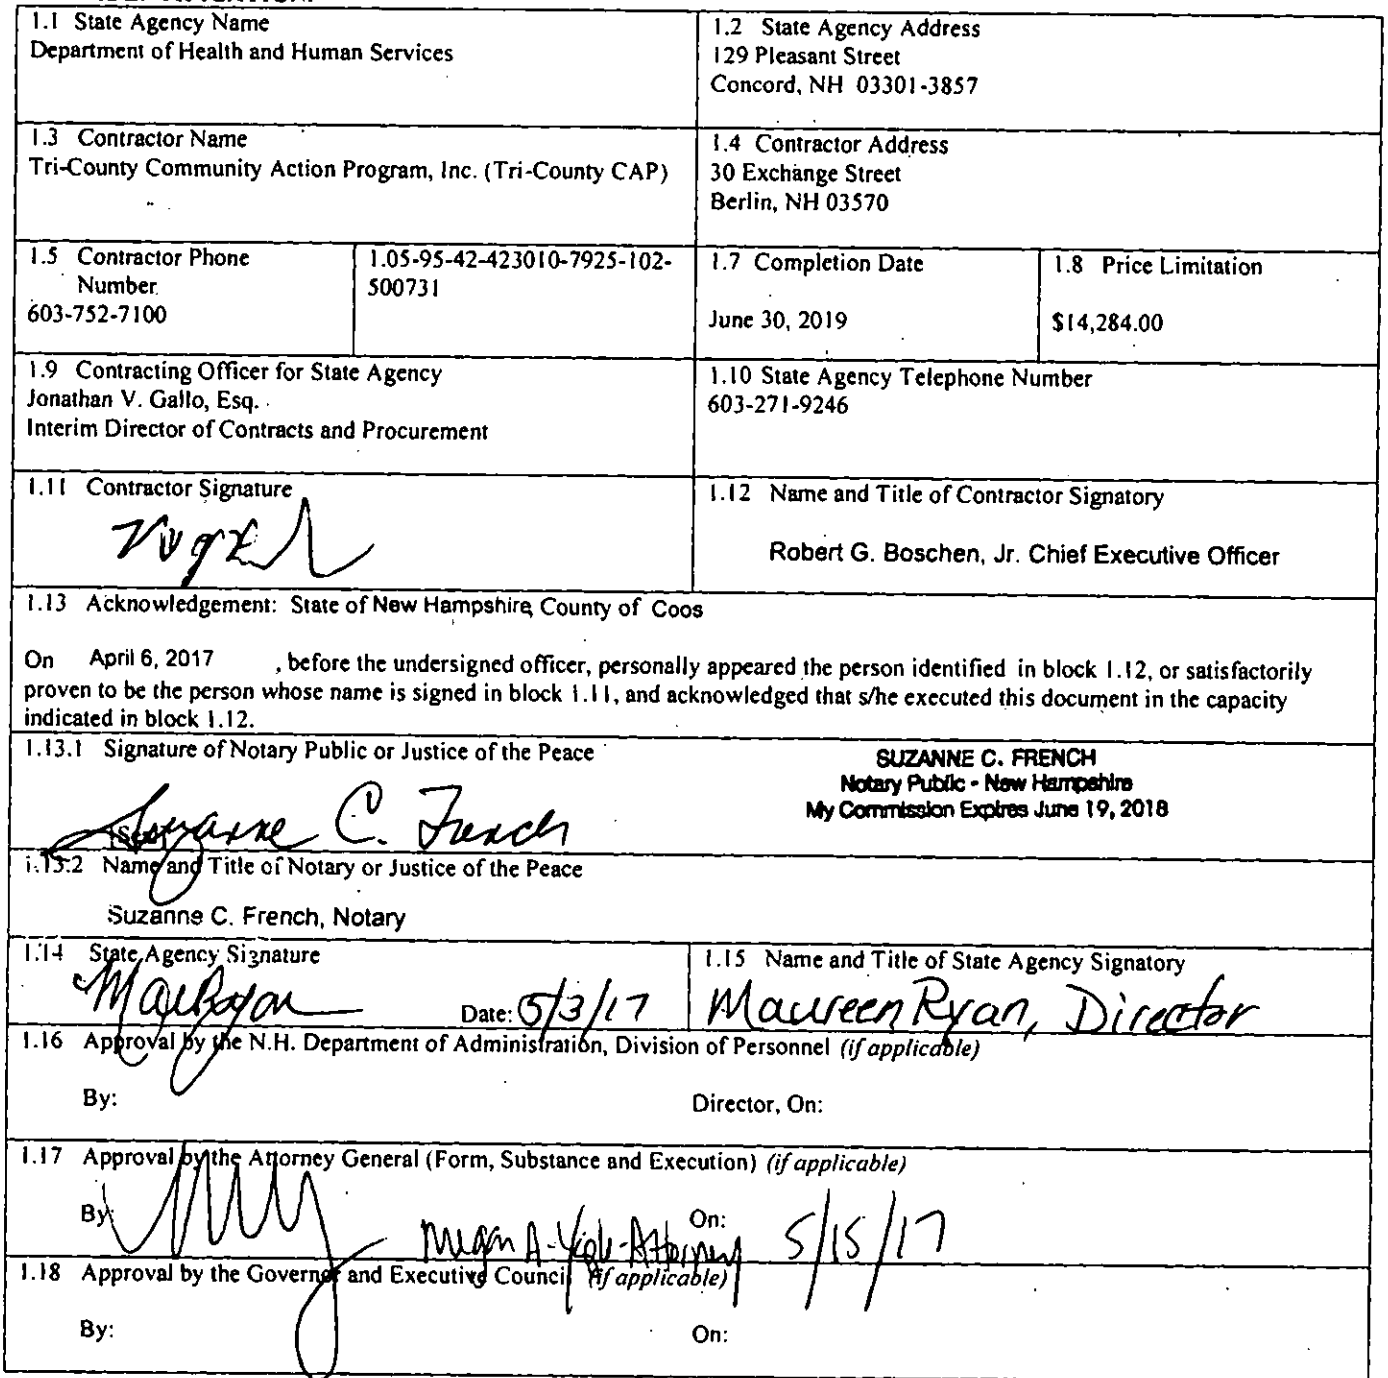 1.1 State Agency Name
Department of Health and Human Services
1.2 State Agency Address
129 Pleasant Street
Concord, NH 03301-3857
1.3 Contractor Name
Tri-County Community Action Program, Inc. (Tri-County CAP)
1.4 Contractor Address
30 Exchange Street
Berlin, NH 03570
1.5 Contractor Phone
Number
603-752-7100
1.05-95-42-423010-7925-102-
500731
1.7 Completion Date
June 30, 2019
1.8 Price Limitation
$14,284.00
1.9 Contracting Officer for State Agency
Jonathan V. Gallo, Esq.
Interim Director of Contracts and Procurement
1.10 State Agency Telephone Number
603-271-9246
1.11 Contractor Signature
1.12 Name and Title of Contractor Signatory
Robert G. Boschen, Jr. Chief Executive Officer
1.13 Acknowledgement: State of New Hampshire, County of Coos
On April 6, 2017 , before the undersigned officer, personally appeared the person identified in block 1.12, or satisfactorily
proven to be the person whose name is signed in block 1.11, and acknowledged that s/he executed this document in the capacity
indicated in block 1.12.
1.13.1 Signature of Notary Public or Justice of the Peace
SUZANNE C. FRENCH
Notary Public - New Hampshire
My Commission Expires June 19, 2018
Suzanne C. French
[Seal]
1.13.2 Name and Title of Notary or Justice of the Peace
Suzanne C. French, Notary
1.14 State Agency Signature
Date: 5/3/17
1.15 Name and Title of State Agency Signatory
Maureen Ryan, Director
1.16 Approval by the N.H. Department of Administration, Division of Personnel (if applicable)
By:
Director, On:
1.17 Approval by the Attorney General (Form, Substance and Execution) (if applicable)
By:
Megan A. - Attorney
On: 5/15/17
1.18 Approval by the Governor and Executive Council (if applicable)
By:
On: